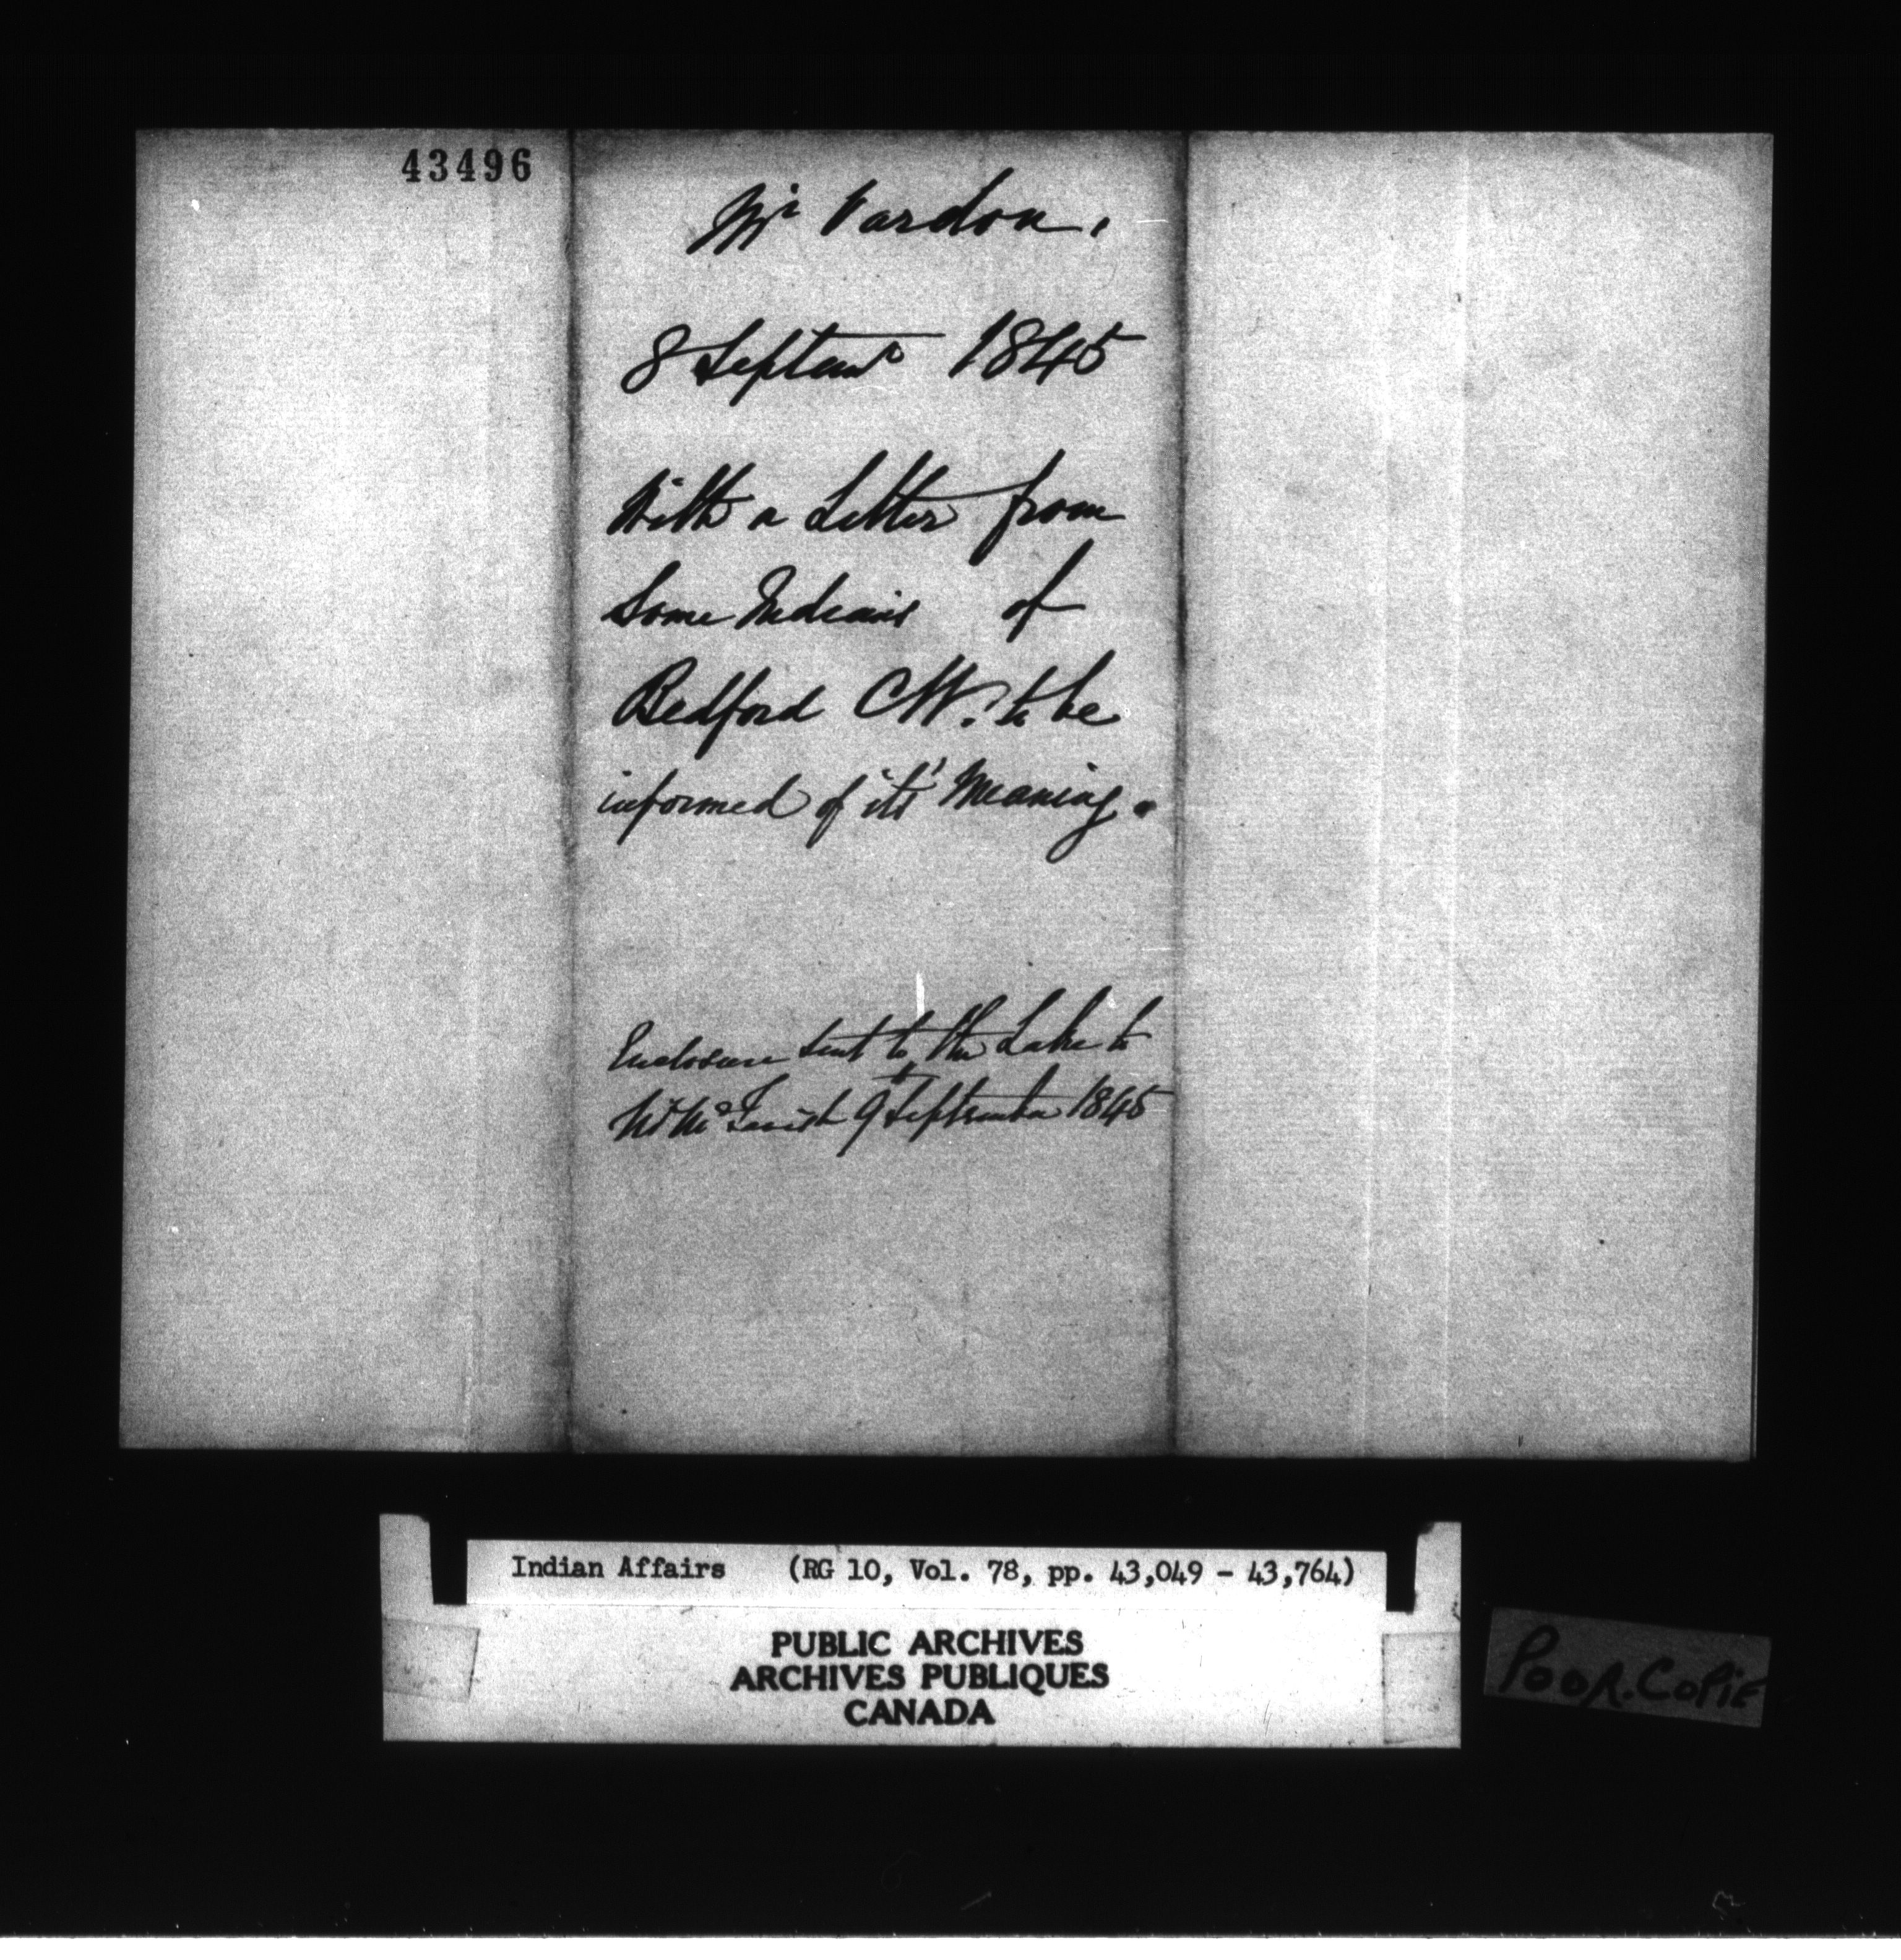 43496
Mr Vardon.
8 Septemr 1845
With a Letter from
Some Indians of
Bedford CW. to be
informed of its' Meaning.
Enclosure sent to the Lake to
Mr McTavish 9th September 1845
Indian Affairs (RG 10, Vol. 78, pp. 43,049 - 43,764)
PUBLIC ARCHIVES
ARCHIVES PUBLIQUES
CANADA
POOR.COPIE